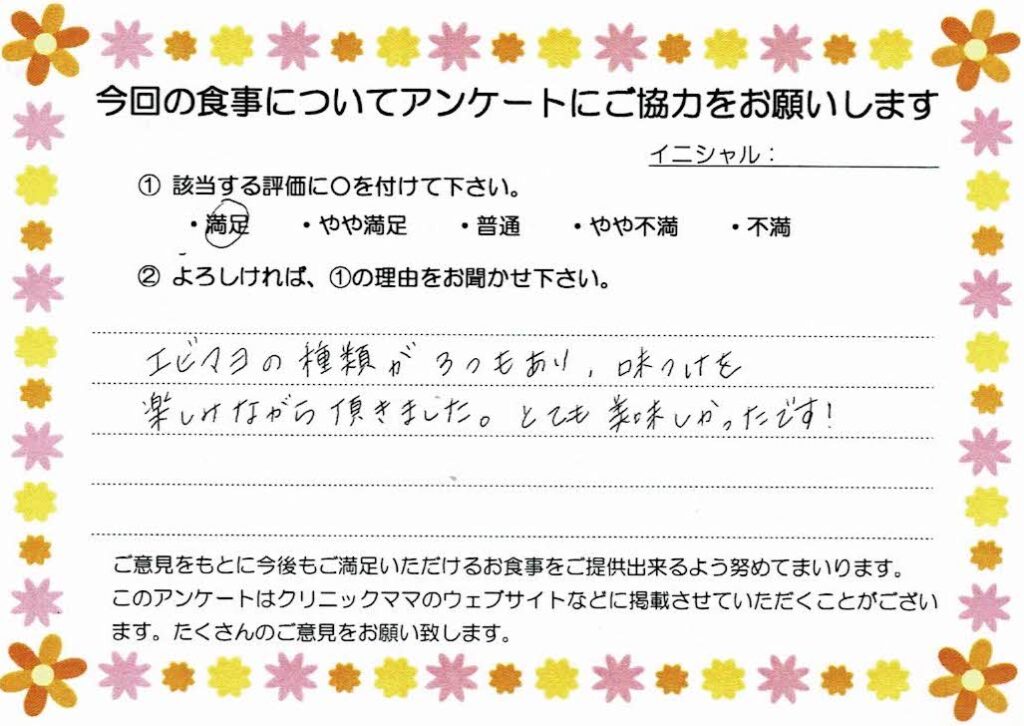 今回の食事についてアンケートにご協力をお願いします
イニシャル：
① 該当する評価に〇を付けて下さい。
・満足 ・やや満足 ・普通 ・やや不満 ・不満
② よろしければ、①の理由をお聞かせ下さい。
エビマヨの種類が3つもあり、味つけを
楽しみながら頂きました。とても美味しかったです!
ご意見をもとに今後もご満足いただけるお食事をご提供出来るよう努めてまいります。
このアンケートはクリニックママのウェブサイトなどに掲載させていただくことがござい
ます。たくさんのご意見をお願い致します。